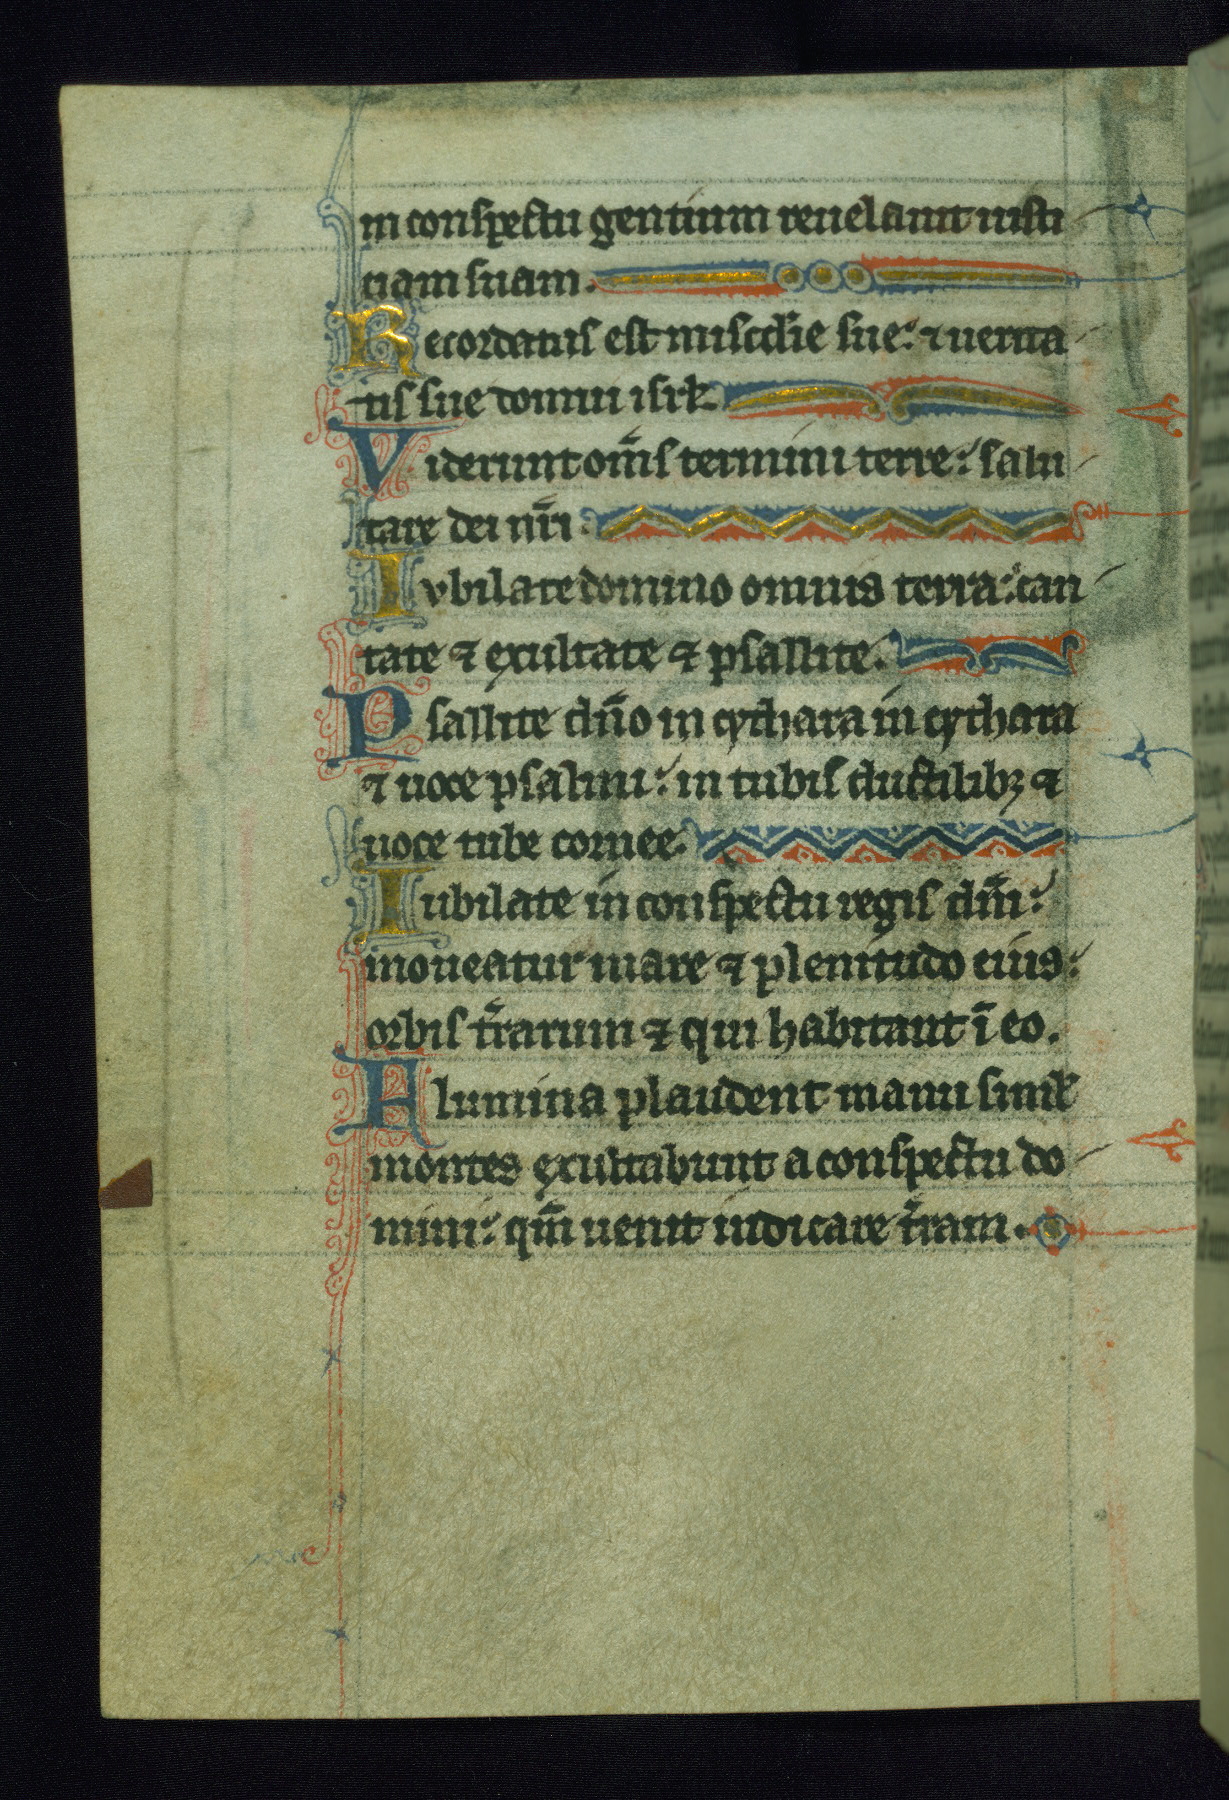 in conspectu gentium reuelauit iusti
tiam suam.
Recordatus est miscd̄ie sue: ⁊ uerita
tis sue domui isrł.
Viderunt om̄s termini terre: salu
tare dei nr̄i.
Iubilate domino omnis terra: can
tate ⁊ exultate ⁊ psallite.
Psallite dn̄o in cythara in cythara
⁊ uoce psalmi: in tubis ductilibꝫ ⁊
uoce tube cornee.
Iubilate in conspectu regis dn̄i:
moueatur mare ⁊ plenitudo eius:
orbis tr̄arum ⁊ qui habitant ī eo.
Flumina plaudent manu simł
montes exultabunt a conspectu do
mini: qm̄ uenit iudicare tr̄am.